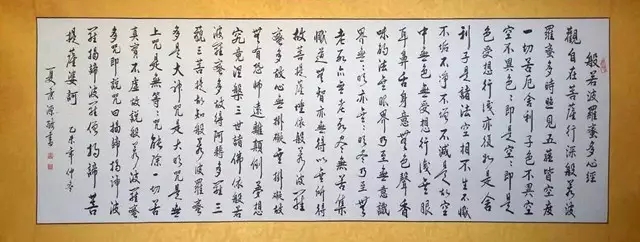 般若波羅蜜多心經
觀自在菩薩行深般若波
羅蜜多時照見五蘊皆空度
一切苦厄舍利子色不異空
空不異色色即是空空即是
色受想行識亦復如是舍
利子是諸法空相不生不滅
不垢不淨不增不減是故空
中無色無受想行識無眼
耳鼻舌身意無色聲香
味觸法無眼界乃至無意識
界無無明亦無無明盡乃至無
老死亦無老死盡無苦集
滅道無智亦無得以無所得
故菩提薩埵依般若波羅
蜜多故心無掛礙無掛礙故
無有恐怖遠離顛倒夢想
究竟涅槃三世諸佛依般若
波羅蜜多故得阿耨多羅三
藐三菩提故知般若波羅蜜
多是大神咒是大明咒是無
上咒是無等等咒能除一切苦
真實不虛故說般若波羅蜜
多咒即說咒曰揭諦揭諦波
羅揭諦波羅僧揭諦菩
提薩婆訶 乙未年仲冬
夏景源敬書